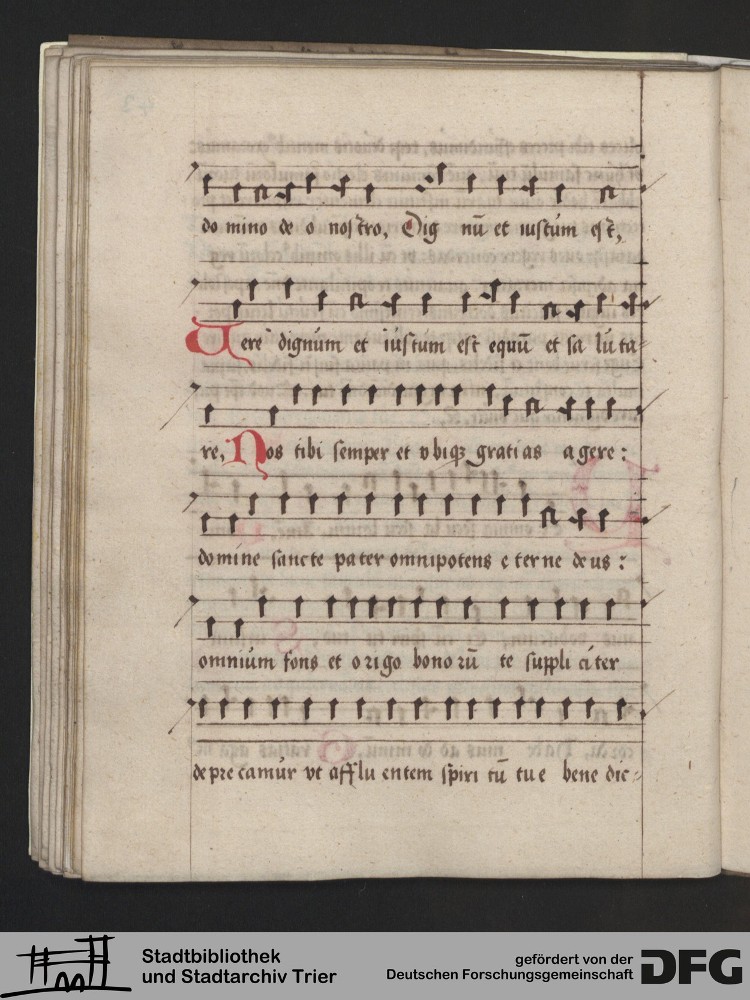 do mino de o nostro, Dig nū et iustum est,
Uere dignum et iustum est equū et sa lu ta⸗
re, Nos tibi semper et vbiqꝫ gratias agere :
domine sancte pater omnipotens eterne deus :
omnium fons et origo bonorū te suppliciter
deprecamur vt affluentem spiritū tue bene dic⸗
Stadtbibliothek
und Stadtarchiv Trier
gefördert von der
Deutschen Forschungsgemeinschaft
DFG